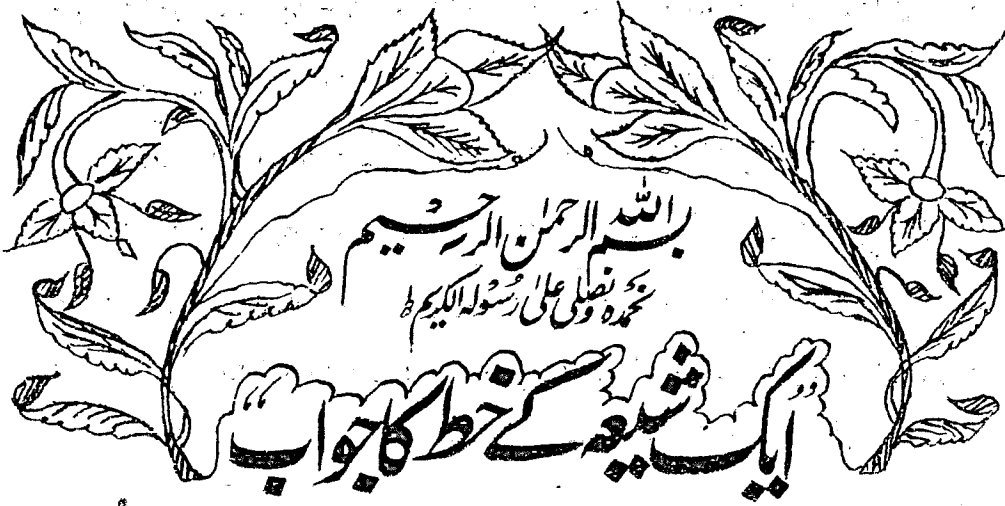 بسم اللہ الرحمٰن الرحیم
نحمدہ و نصلی علیٰ رسولہ الکریم ط
”ایک شیعہ کے خط کا جواب“